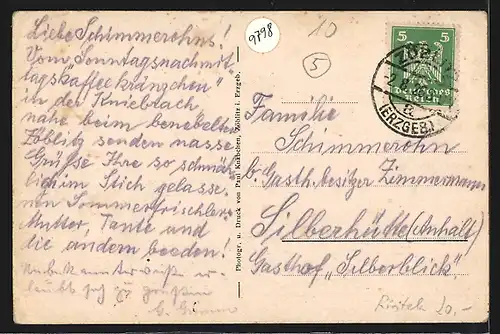 Liebe Schimmerohns!
Vom „Sonntagsnachmit-
tagskaffeekränzchen"
in der Kniebach
nahe beim benebelten
Zöblitz senden nasse
Grüße Ihre so schmäh-
lich im Stich gelasse-
nen Sommerfrischler
Mutter, Tante und
die andern beeden!
Unbekannterweise er-
laubt sich zu grüßen
G.
Photogr. u. Druck von Paul Zöblitz i. Erzgeb.
9798
10
5
5 5
Deutsches
Reich
(ERZGEB.)
Familie
Schimmerohn
b. Gasth. besitzer Zimmermann
Silberhütte (Anhalt)
Gasthof „Silberblick."
20,-